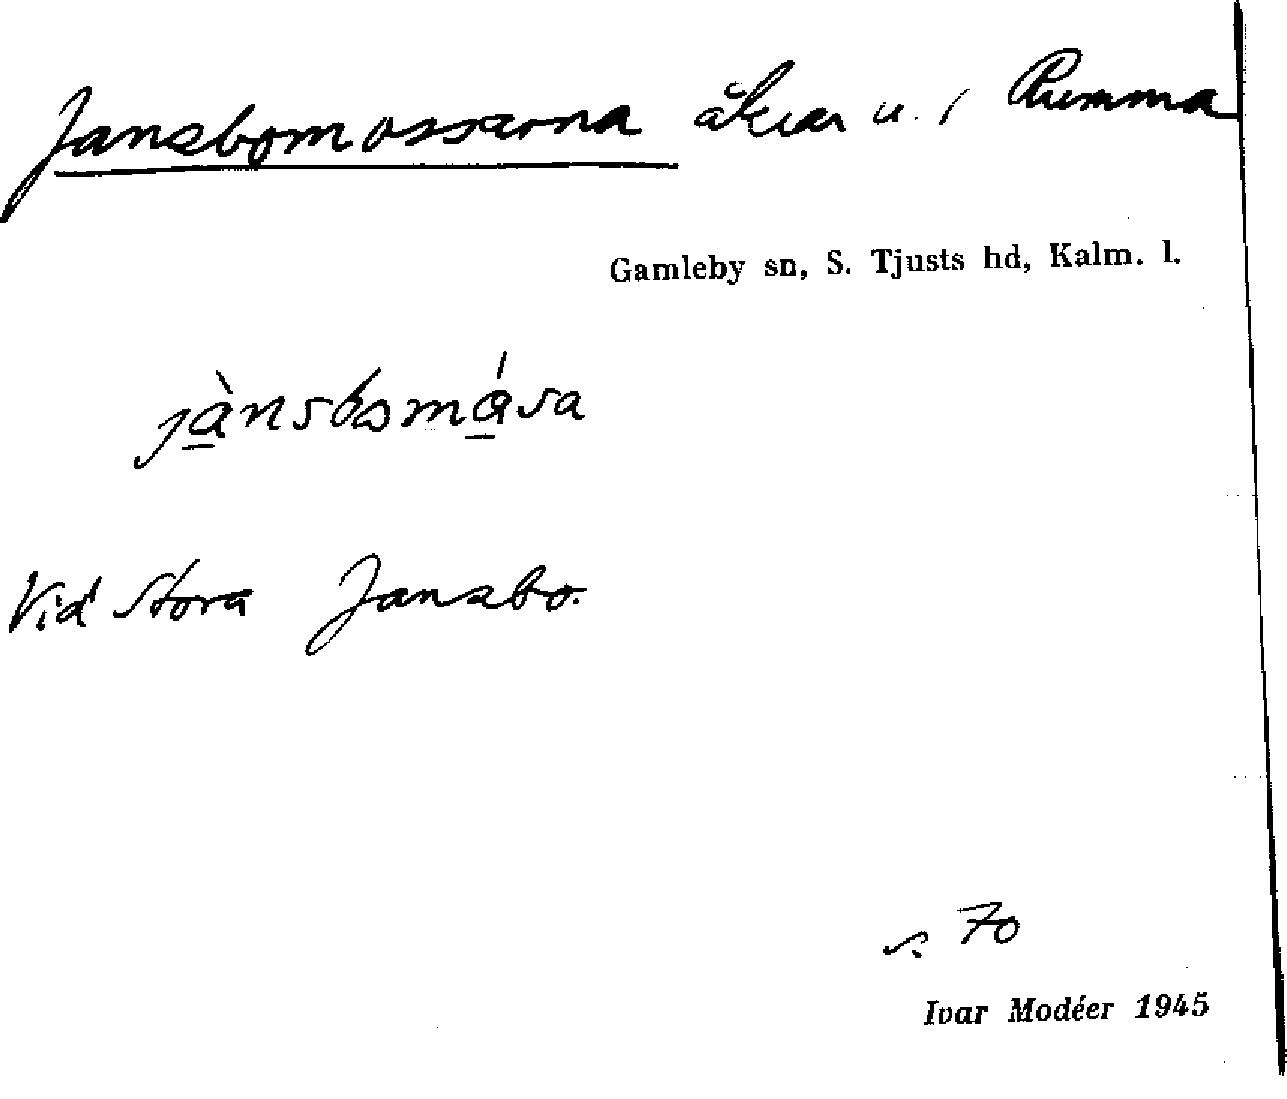 Jansbomossarna åkrar u. / Rumma
Gamleby sn, S. Tjusts hd, Kalm. l.
Vid Stora Jansbo.
s. 70
Ivar Modéer 1945